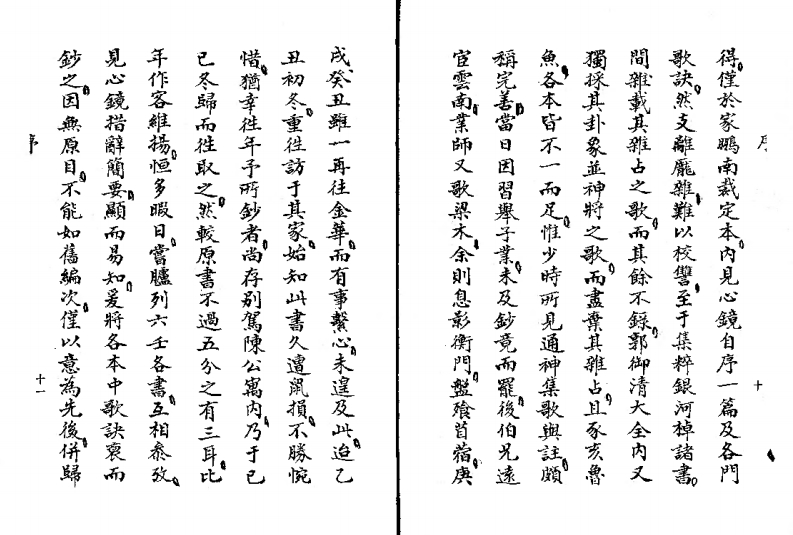 序
得僅於家鵬南裁定本內見心鏡自序一篇及各門
歌訣然支離龐雜難以校讐至于集粹銀河棹諸書
間雜載其雜占之歌而其餘不錄郭御清大全內又
獨採其卦象並神將之歌而盡棄其雜占且豕亥魯
魚各本皆不一而足惟少時所見通神集歌與註頗
稱完善當日因習舉子業未及鈔竟而罷後伯兄遠
宦雲南業師又歌梁木余則息影衡門盤飱苜蓿庚
十
戌癸丑雖一再往金華而有事繫心未遑及此迨乙
丑初冬重徃訪于其家始知此書久遭鼠損不勝惋
惜猶幸徃年予所鈔者尚存别駕陳公寓內乃于己
巳冬歸而徃取之然較原書不過五分之有三耳比
年作客維揚恒多暇日嘗臚列六壬各書互相叅攷
見心鏡措辭簡要顯而易知爰將各本中歌訣裒而
鈔之因無原目不能如舊編次僅以意為先後併歸
序
十一